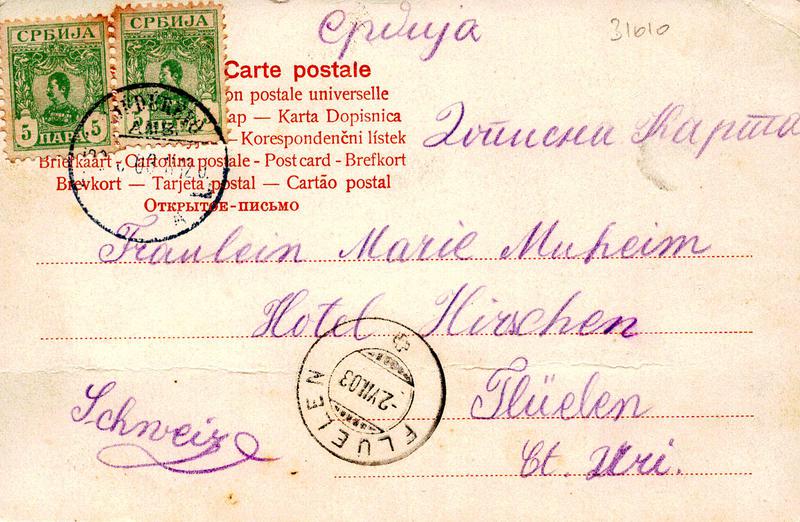 Србија
31610
СРБИЈА СРБИЈА
5 ПАРА 5 5
Carte postale
on postale universelle
ар — Karta Dopisnica
Korespondenční lístek
Дописна Карта
Briefkaart - Cartolina postale - Post card - Brefkort
Brevkort — Tarjeta postal — Cartão postal
Открытое-письмо
Fräulein Marie Muheim
Hotel Hirschen
Flüelen
Ct. Uri.
Schweiz
FLÜELEN
-2.VII.03